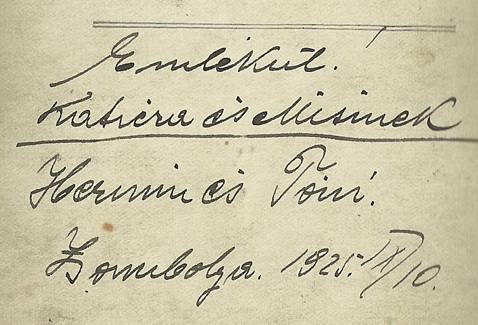 Emlékül.
Katicza és Misinek
Hermin és Toni.
Zsombolya. 1925. IV/10.